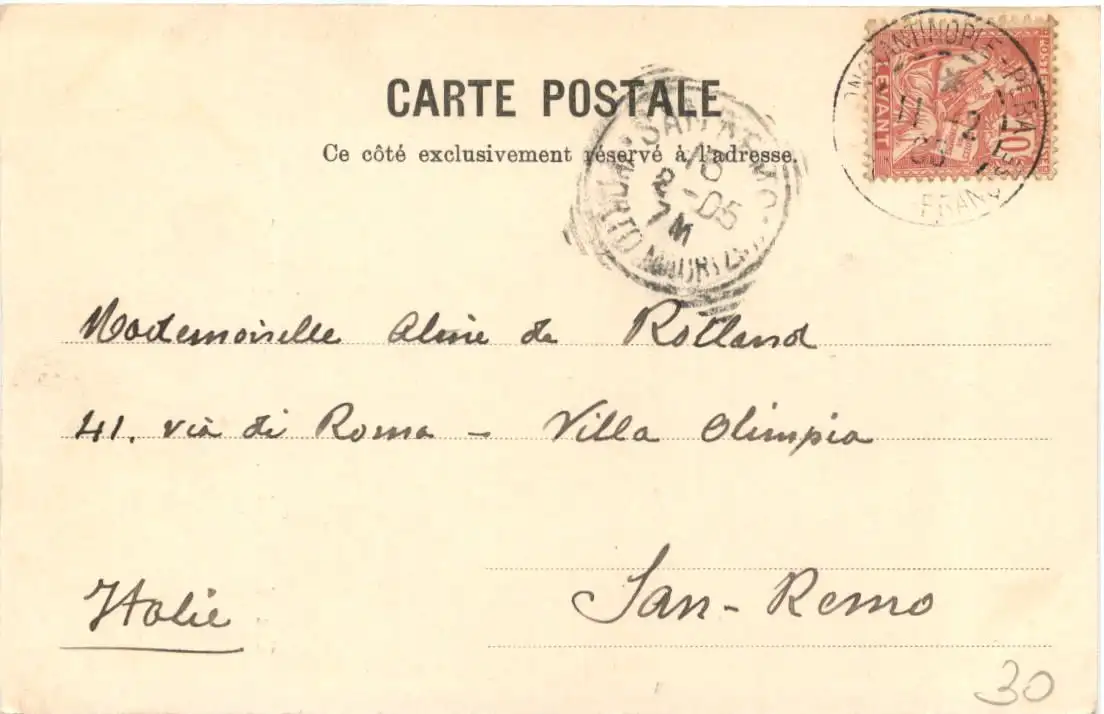 CARTE POSTALE
Ce côté exclusivement réservé à l'adresse.
CONSTANTINOPLE-PERA
11 -2
FRANÇ
LEVANT
10
SAN REMO
16
2 -05
7 M
Mademoiselle Aline de Rolland
41. via di Roma - Villa Olimpia
San-Remo
Italie
30